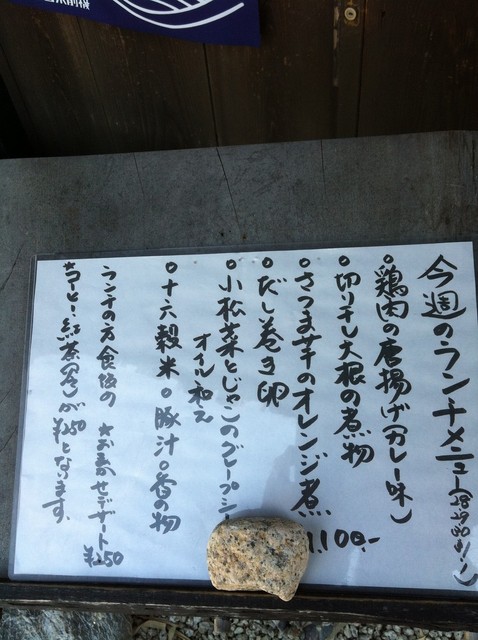 今週のランチメニュー
○鶏肉の唐揚げ(カレー味)
○切り干し大根の煮物
○さつま芋のオレンジ煮
○だし巻き卵
○小松菜とじゃこのグレープシー
オイル和え
○十六穀米○豚汁○香の物
1,100.-
ランチの方食後の
★おまかせデザート
¥250
★コーヒー、紅茶 が¥150となります。